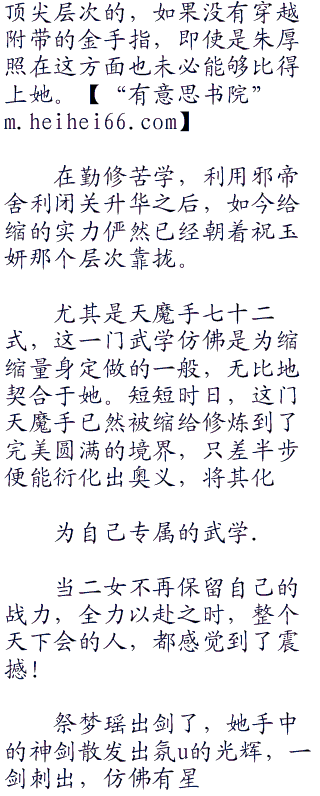 顶尖层次的，如果没有穿越
附带的金手指，即使是朱厚
照在这方面也未必能够比得
上她。【“有意思书院”
m.heihei66.com】
在勤修苦学，利用邪帝
舍利闭关升华之后，如今给
缩的实力俨然已经朝着祝玉
妍那个层次靠拢。
尤其是天魔手七十二
式，这一门武学仿佛是为缩
缩量身定做的一般，无比地
契合于她。短短时日，这门
天魔手已然被缩给修炼到了
完美圆满的境界，只差半步
便能衍化出奥义，将其化
为自己专属的武学．
当二女不再保留自己的
战力，全力以赴之时，整个
天下会的人，都感觉到了震
撼！
祭梦瑶出剑了，她手中
的神剑散发出氛u的光辉，一
剑刺出，仿佛有星